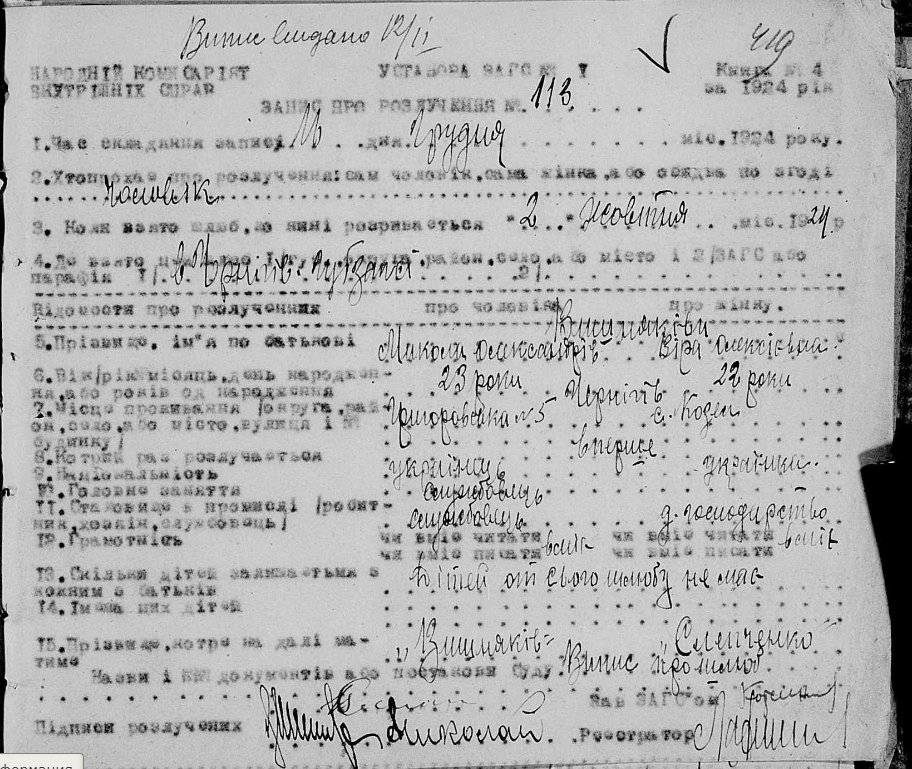 Випис видано 12/II
419
НАРОДНІЙ КОМІСАРІЯТ УСТАНОВА ЗАГС № I Книга № 4
ВНУТРІШНІК СПРАВ за 1924 рік
ЗАПИС ПРО РОЗЛУЧЕННЯ №. 113.
1. Час складання записі дня Грудня міс. 1924 року.
2. Хто прохає про розлучення: сам чоловік, сама жінка, або обидва по згоді
чоловік
3. Коли взято шлюб, що нині розривається "2" Жовтня міс. 1924 р
4. Де взято округа, район, село, або місто і 2/ЗАГС або
парафія 1/ в 2/
Відомости про розлучених про чоловіка про жінку.
Вишнякови
5. Прізвище, ім"я по батькові Микола Олександрів Віра Олексіевна
6. Вік/рік місяць, день народжен-
ня, або років од народження 23 роки 22 роки
7. Місце проживання /округа, рай- Чернігів
он, село, або місто, вулиця і № № 5 с. Коден
будинку/
8. Котрий раз розлучається вперше
9. Національність українець українка
10. Головне заняття службовець
11. Становище в промислі /робіт-
ник, хозяїн, службовець/ службовець д. господарство
12. Грамотність чи вміє читати чи вміє читати
чи вміє писати вміє чи вміє писати вміє
13. Скільки дітей залишається з Дітей от сього шлюбу не має
кожним з батьків
14. Імена них дітей
15. Прізвище, котре на далі ма- Вишняків Слепченко
тиме
Назви і №№ документів або постанови Суду. Випис
Зав ЗАГС"ом
Підписи розлучених Николай Реєстратор
формация